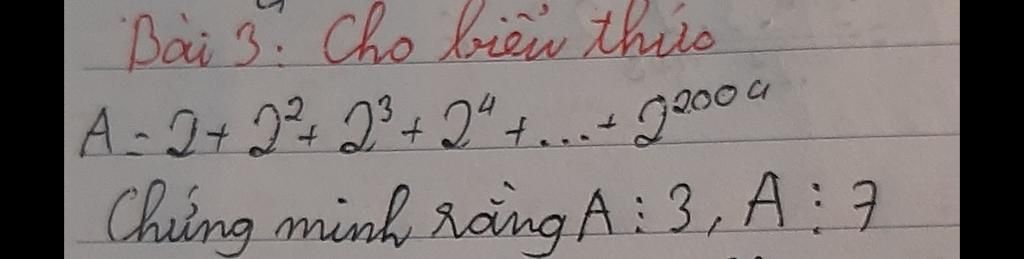 Bài 3: Cho biểu thức
A = 2 + 2² + 2³ + 2⁴ + ... + 2²⁰⁰⁴
Chứng minh rằng A ⋮ 3, A ⋮ 7